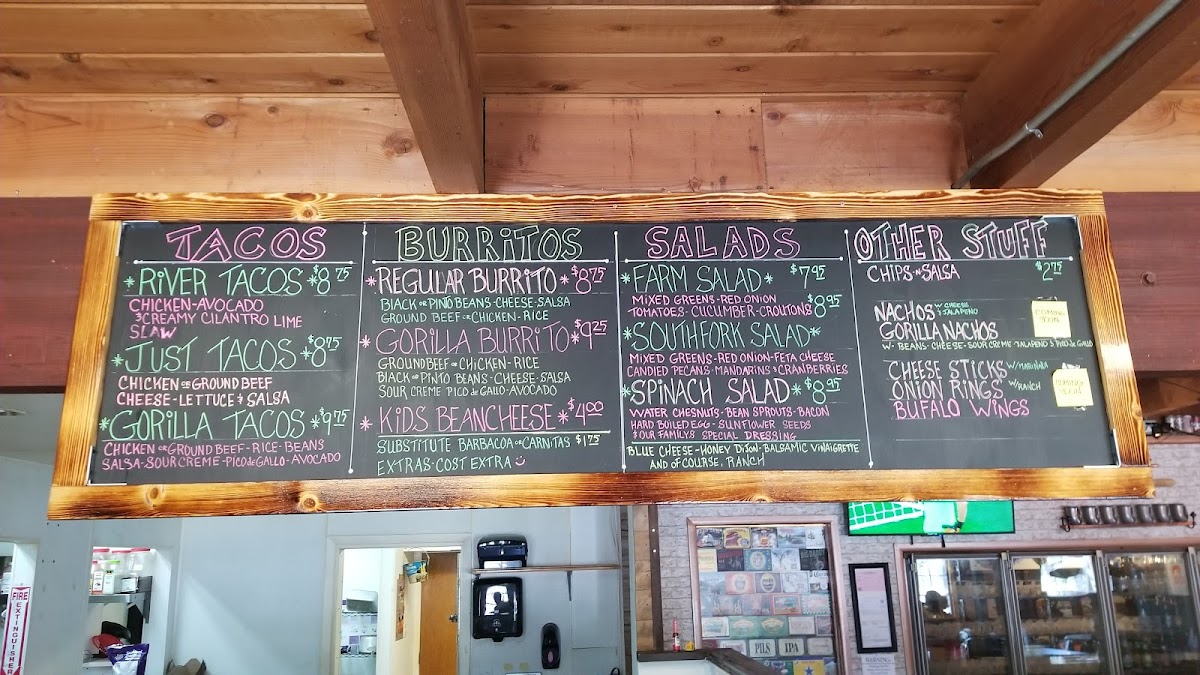 TACOS
*RIVER TACOS *$8.75
CHICKEN-AVOCADO
& CREAMY CILANTRO LIME
SLAW
*JUST TACOS *$8.75
CHICKEN OR GROUND BEEF
CHEESE-LETTUCE & SALSA
*GORILLA TACOS *$9.75
CHICKEN OR GROUND BEEF-RICE-BEANS
SALSA-SOUR CREME-PICO de GALLO-AVOCADO
BURRITOS
*REGULAR BURRITO *$8.75
BLACK OR PINTO BEANS-CHEESE-SALSA
GROUND BEEF OR CHICKEN-RICE
*GORILLA BURRITO *$9.25
GROUND BEEF OR CHICKEN-RICE
BLACK OR PINTO BEANS-CHEESE-SALSA
SOUR CREME PICO de GALLO-AVOCADO
*KIDS BEANCHEESE *$4.00
SUBSTITUTE BARBACOA OR CARNITAS $1.75
EXTRAS-COST EXTRA
SALADS
*FARM SALAD* $7.95
MIXED GREENS-RED ONION
TOMATOES-CUCUMBER-CROUTONS
*SOUTHFORK SALAD* $8.95
MIXED GREENS-RED ONION-FETA CHEESE
CANDIED PECANS-MANDARINS & CRANBERRIES
*SPINACH SALAD* $8.95
WATER CHESNUTS-BEAN SPROUTS-BACON
HARD BOILED EGG-SUNFLOWER SEEDS
& OUR FAMILYS SPECIAL DRESSING
BLUE CHEESE-HONEY DIJON-BALSAMIC VINAIGRETTE
AND OF COURSE, RANCH
OTHER STUFF
CHIPS-N-SALSA $2.75
NACHOS W/CHEESE & JALAPENO
COMING SOON
GORILLA NACHOS
W-BEANS-CHEESE-SOUR CREME-JALAPENO & PICO de GALLO
CHEESE STICKS W/MARINARA
ONION RINGS W/RANCH
COMING SOON
BUFALO WINGS
FIRE EXTINGUISHER
PILS
IPA
WARNING